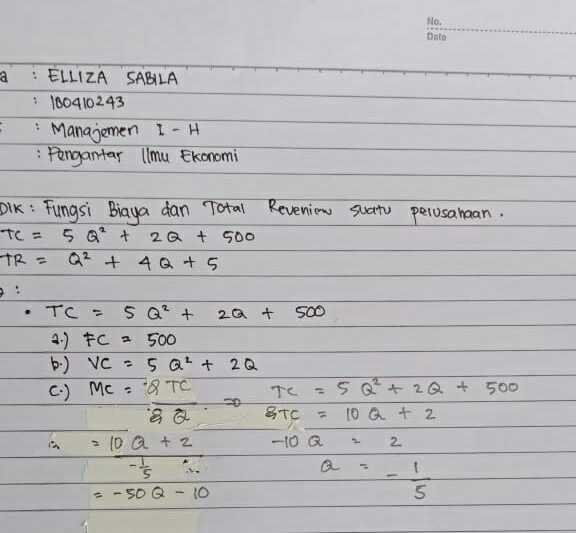 No.
Date
a : ELLIZA SABILA
: 180410243
: Manajemen I - H
: Pengantar Ilmu Ekonomi
DIK : Fungsi Biaya dan Total Reveniew suatu perusahaan.
TC = 5Q² + 2Q + 500
TR = Q² + 4Q + 5
:
• TC = 5Q² + 2Q + 500
a.) FC = 500
b.) VC = 5Q² + 2Q
c.) MC = ∂TC / ∂Q ⇒ TC = 5Q² + 2Q + 500
∂TC = 10Q + 2
= 10Q + 2 / -1/5 -10Q = 2
Q = - 1/5
= -50Q - 10